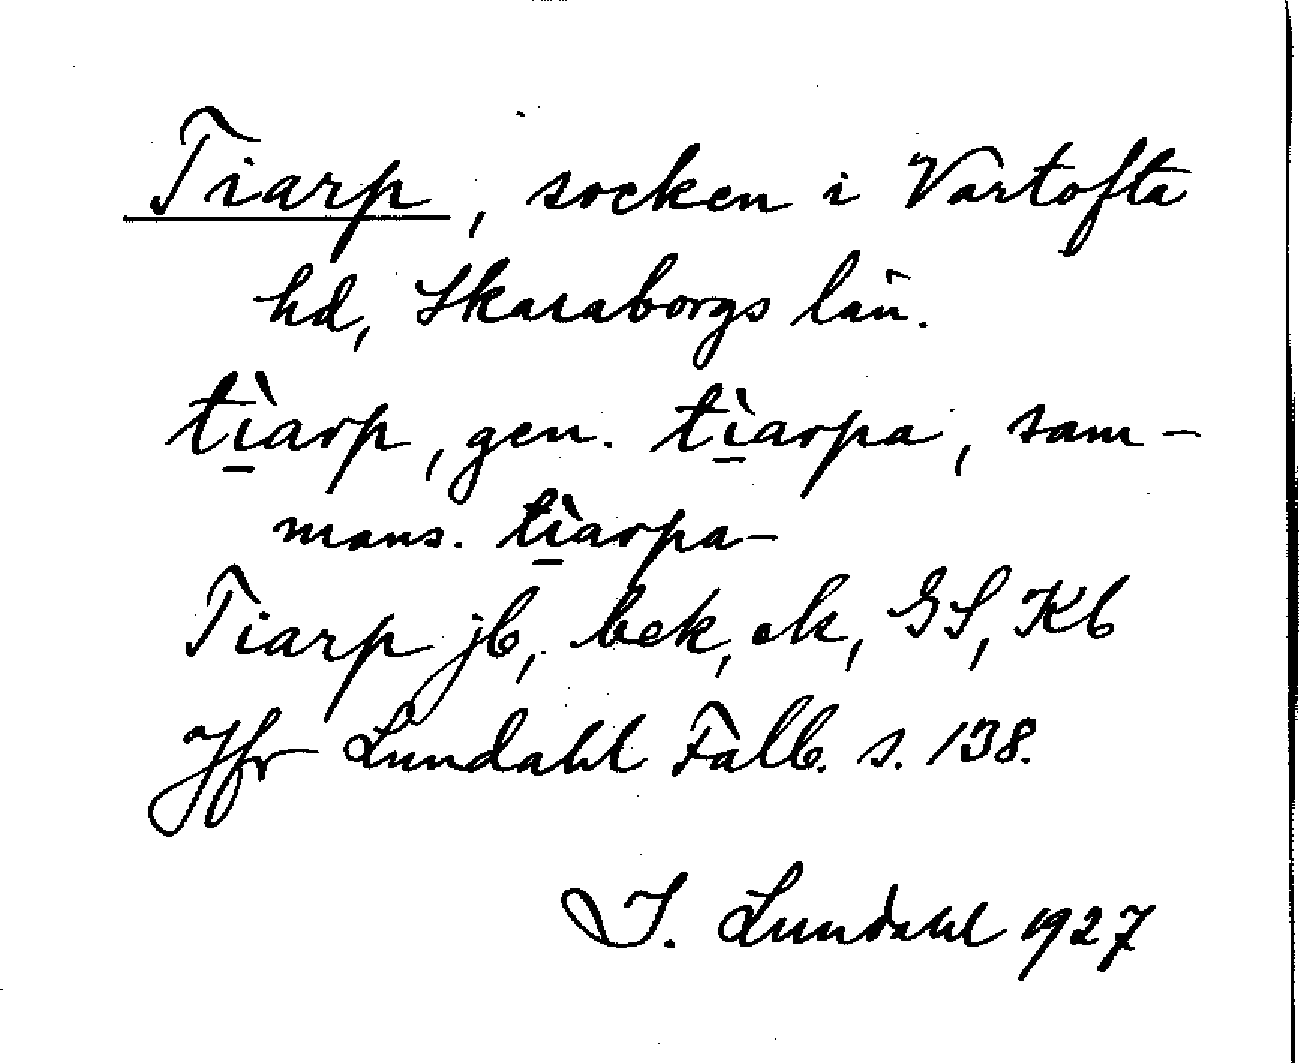 Tiarp, socken i Vartofta
hd, Skaraborgs län.
tì̠arp, gen. tì̠arpa, sam-
mans. tì̠arpa-
Tiarp jb, bek, ek, GS, Kb
Jfr Lundahl Falb. s. 138.
I. Lundahl 1927